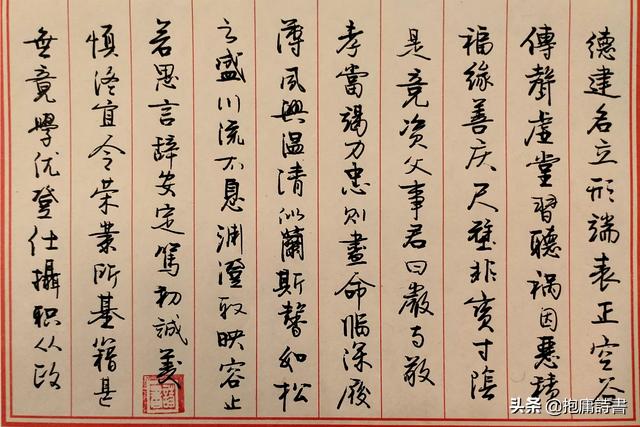 德建名立形端表正空谷
傳聲虚堂習聽禍因惡積
福緣善庆尺璧非寶寸陰
是竞资父事君曰嚴与敬
孝當竭力忠则盡命临深履
薄夙興温清似蘭斯馨如松
之盛川流不息渊澄取映容止
若思言辞安定笃初誠美
慎终宜令荣業所基籍甚
無竟學优登仕攝职从政
头条 @抱庸詩書